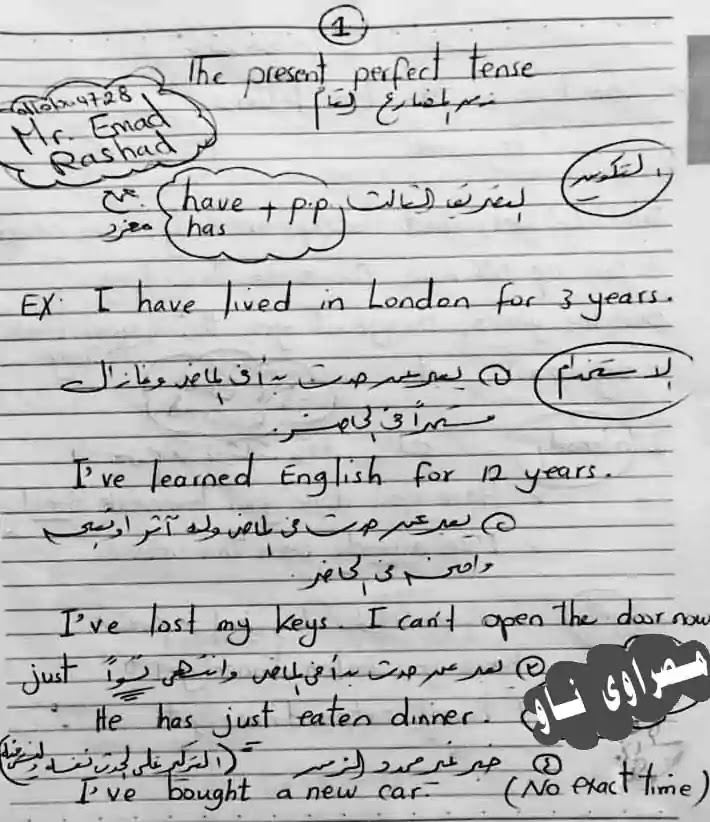 1
The present perfect tense
زمن المضارع التام
4728
Mr. Emad
Rashad
التكوين
جمع have + p.p التصريف الثالث
مفرد has
EX: I have lived in London for 3 years.
الاستخدام ① يعبر عن حدث بدأ فى الماضى ومازال
مستمراً فى الحاضر.
I've learned English for 12 years.
② يعبر عن حدث فى الماضى وله أثر او نتيجه
واضحه فى الحاضر.
I've lost my keys. I can't open the door now
just ③ يعبر عن حدث بدأ فى الماضى وانتهى تواً
He has just eaten dinner.
مصراوى ناو
④ خبر غير محدد الزمن (التركيز على الحدث نفسه
I've bought a new car. (No exact time)